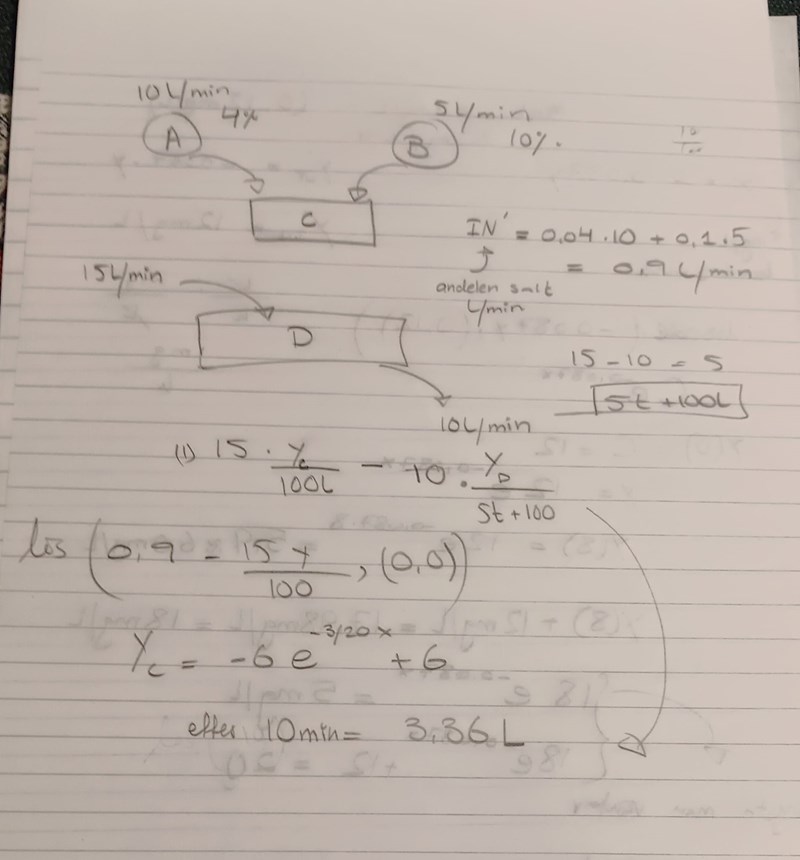 10 L/min
4%
A
5 L/min
10%.
B
10/100
C
IN' = 0,04 · 10 + 0,1 · 5
= 0,9 L/min
andelen salt
L/min
15 L/min
D
10 L/min
15 - 10 = 5
5t + 100L
(1) 15 · Yc/100L - 10 · YD/5t+100
løs (0,9 - 15Y/100, (0,0))
Yc = -6 e^-3/20x + 6
efter 10 min = 3,36 L